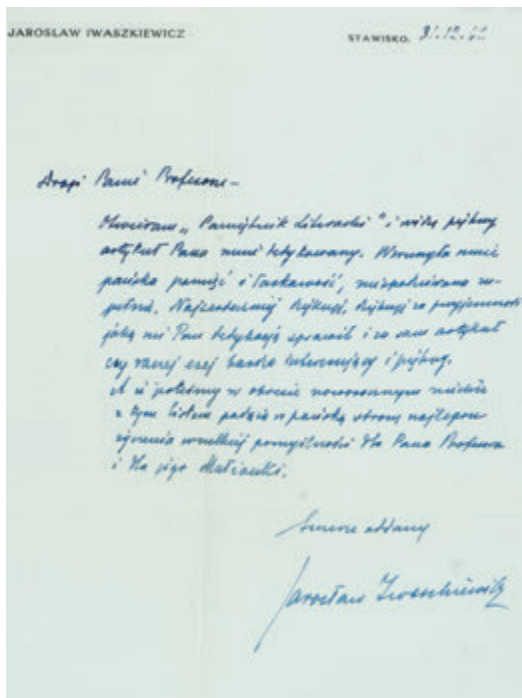 JAROSŁAW IWASZKIEWICZ
STAWISKO, 31.12.62
Drogi Panie Profesorze –
Otwieram „Pamiętnik Literacki" i widzę piękny
artykuł Pana mnie dedykowany. Wzruszyła mnie
pańska pamięć i łaskawość, niespodziewana zu-
pełnie. Najserdeczniej dziękuję, dziękuję za przyjemność
jaką mi Pan dedykacją sprawił i za sam artykuł
czy raczej esej bardzo interesujący i piękny.
A iż jesteśmy w okresie noworocznym niechże
z tym listem podążą w pańską stronę najlepsze
życzenia wszelkiej pomyślności dla Pana Profesora
i dla jego Małżonki.
Szczerze oddany
Jarosław Iwaszkiewicz